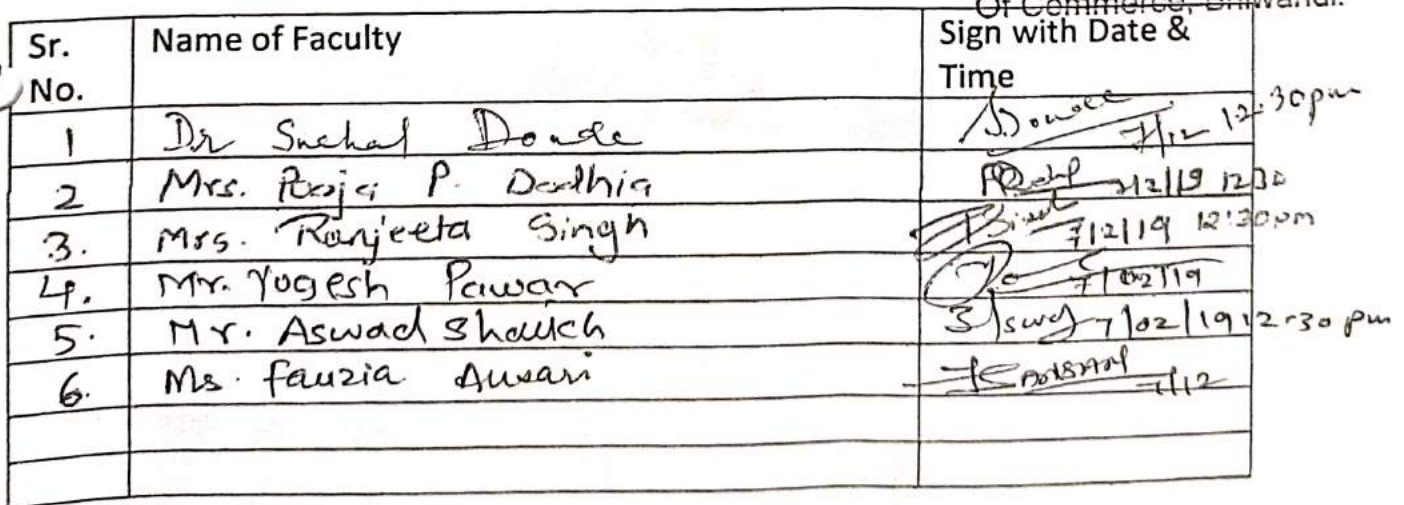 Of Commerce, Bhiwandi.
Sr. No. Name of Faculty Sign with Date & Time
1 Dr Snehal Donde Donde 7/12 12.30pm
2 Mrs. Pooja P. Dedhia 7/2/19 12 30
3. Mrs. Ranjeeta Singh 7/2/19 12:30pm
4. Mr. Yogesh Pawar 7/02/19
5. Mr. Aswad Shaikh 7/02/19 12-30 pm
6. Ms. Fauzia Ansari 7/12